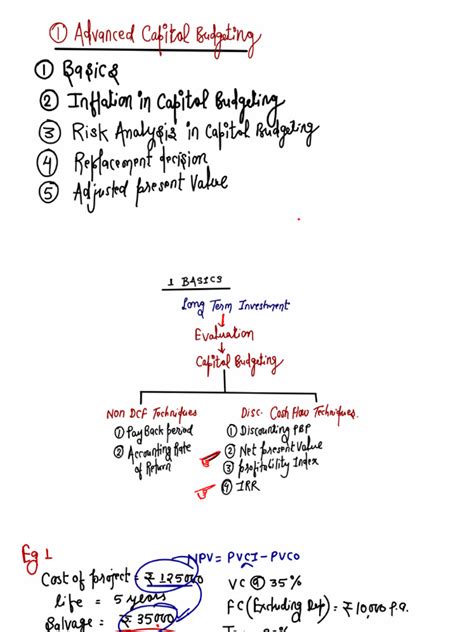 ① Advanced Capital Budgeting
① Basics
② Inflation in Capital Budgeting
③ Risk Analysis in Capital Budgeting
④ Replacement decision
⑤ Adjusted present Value
1 BASICS
Long Term Investment
Evaluation
Capital Budgeting
Non DCF Techniques
① Pay Back period
② Accounting Rate
of Return
Disc. Cash Flow Techniques.
① Discounting PBP
② Net present Value
③ profitability Index
④ IRR
Eg 1
NPV = PVCI - PVCO
Cost of project = ₹ 125000
life = 5 years
Salvage = ₹ 35000
VC @ 35%
FC (Excluding Dep) = ₹ 10,000 p.a.